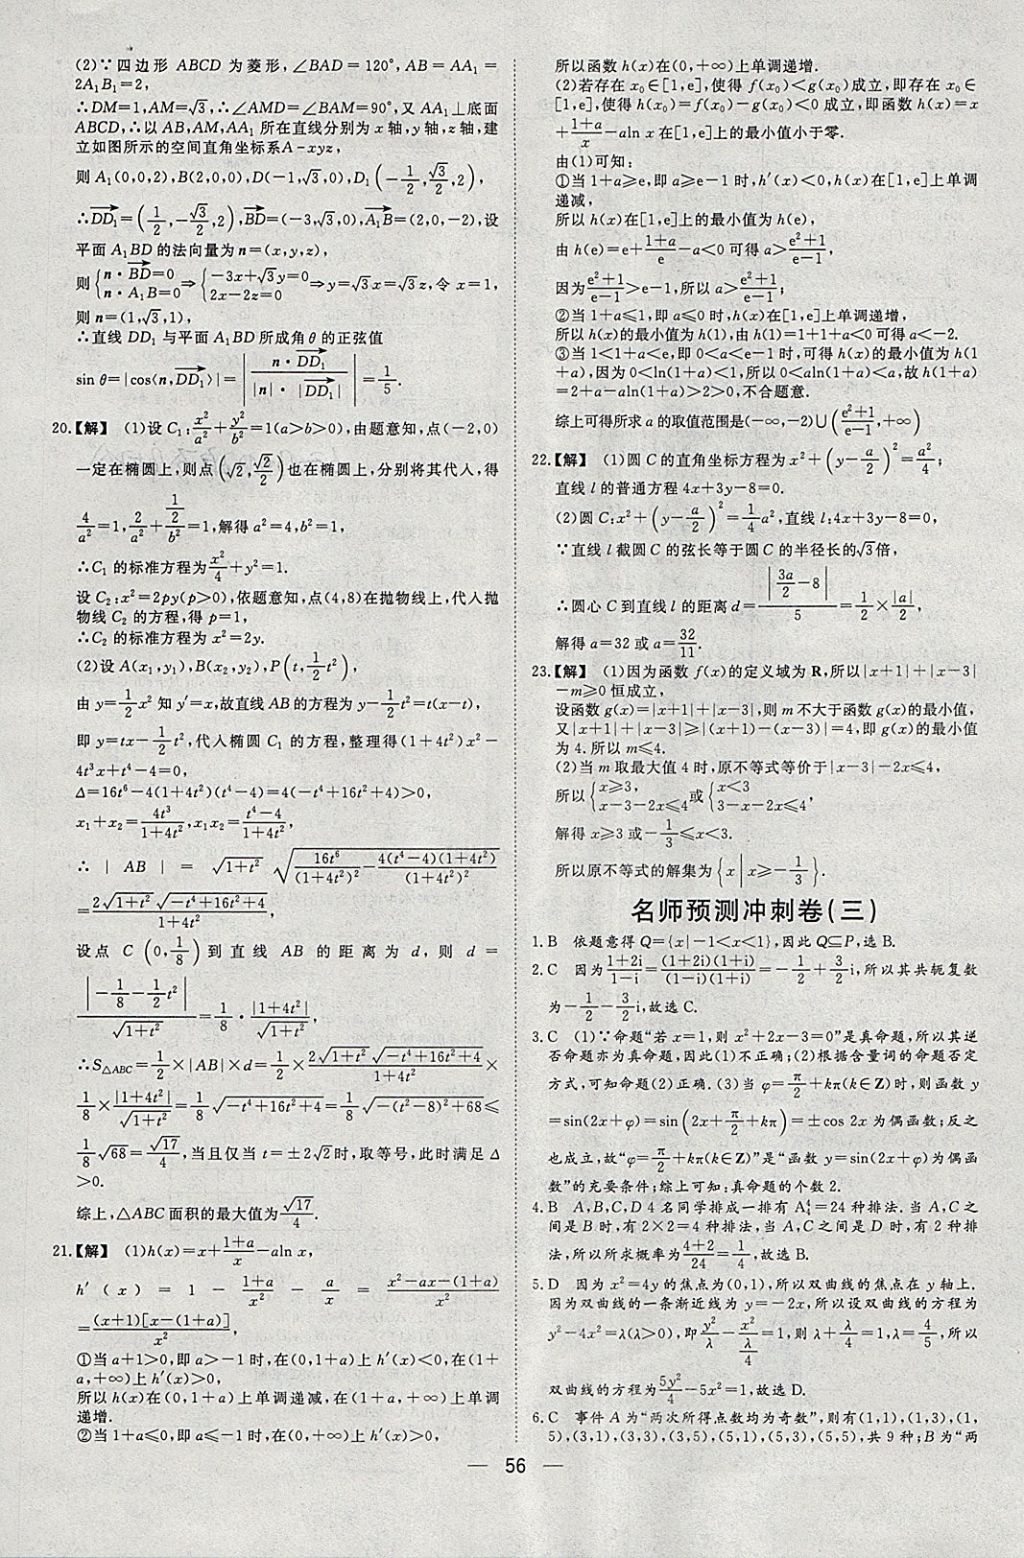 (2)∵四边形 ABCD 为菱形,∠BAD=120°,AB=AA₁=
2A₁B₁=2,
∴DM=1,AM=√3,∴∠AMD=∠BAM=90°,又 AA₁⊥底面
ABCD,∴以 AB,AM,AA₁ 所在直线分别为 x 轴,y 轴,z 轴,建
立如图所示的空间直角坐标系A-xyz,
则 A₁(0,0,2),B(2,0,0),D(-1,√3,0),D₁(-1/2,√3/2,2),
∴DD₁→=(1/2,-√3/2,2),BD→=(-3,√3,0),A₁B→=(2,0,-2),设
平面 A₁BD 的法向量为 n=(x,y,z),
则{n·BD→=0 n·A₁B→=0⇒{-3x+√3y=0 2x-2z=0⇒y=√3x=√3z,令 x=1,
则 n=(1,√3,1),
∴直线 DD₁ 与平面 A₁BD 所成角 θ 的正弦值
sin θ=|cos⟨n,DD₁→⟩|=|n·DD₁→/|n|·|DD₁→||=1/5.
20.【解】 (1)设 C₁:x²/a²+y²/b²=1(a>b>0),由题意知,点(-2,0)
一定在椭圆上,则点(√2,√2/2)也在椭圆上,分别将其代人,得
4/a²=1,2/a²+(1/2)/b²=1,解得 a²=4,b²=1,
∴C₁ 的标准方程为x²/4+y²=1.
设 C₂:x²=2py(p>0),依题意知,点(4,8)在抛物线上,代人抛
物线 C₂ 的方程,得 p=1,
∴C₂ 的标准方程为 x²=2y.
(2)设 A(x₁,y₁),B(x₂,y₂),P(t,1/2t²),
由 y=1/2x² 知 y′=x,故直线 AB 的方程为 y-1/2t²=t(x-t),
即 y=tx-1/2t²,代人椭圆 C₁ 的方程,整理得(1+4t²)x²-
4t³x+t⁴-4=0,
Δ=16t⁶-4(1+4t²)(t⁴-4)=4(-t⁴+16t²+4)>0,
x₁+x₂=4t³/(1+4t²),x₁x₂=(t⁴-4)/(1+4t²),
∴|AB|=√(1+t²)√(16t⁶/(1+4t²)²-4(t⁴-4)(1+4t²)/(1+4t²)²)
=2√(1+t²)√(-t⁴+16t²+4)/(1+4t²),
设点 C(0,1/8)到直线 AB 的距离为 d,则 d=
|-1/8-1/2t²|/√(1+t²)=1/8·|1+4t²|/√(1+t²),
∴S△ABC=1/2×|AB|×d=1/2×2√(1+t²)√(-t⁴+16t²+4)/(1+4t²)×
1/8×|1+4t²|/√(1+t²)=1/8√(-t⁴+16t²+4)=1/8√(-(t²-8)²+68)≤
1/8√68=√17/4,当且仅当 t=±2√2时,取等号,此时满足 Δ
>0.
综上,△ABC 面积的最大值为√17/4.
21.【解】 (1)h(x)=x+(1+a)/x-aln x,
h′(x)=1-(1+a)/x²-a/x=(x²-ax-(1+a))/x²
=(x+1)[x-(1+a)]/x²,
①当 a+1>0,即 a>-1 时,在(0,1+a)上 h′(x)<0,在(1+
a,+∞)上 h′(x)>0,
所以 h(x)在(0,1+a)上单调递减,在(1+a,+∞)上单调
递增.
②当 1+a≤0,即 a≤-1 时,在(0,+∞)上 h′(x)>0,
所以函数 h(x)在(0,+∞)上单调递增.
(2)若存在 x₀∈[1,e],使得 f(x₀)<g(x₀)成立,即存在 x₀∈
[1,e],使得 h(x₀)=f(x₀)-g(x₀)<0 成立,即函数 h(x)=x
+(1+a)/x-aln x在[1,e]上的最小值小于零.
由(1)可知:
①当 1+a≥e,即 a≥e-1 时,h′(x)<0,h(x)在[1,e]上单调
递减,
所以 h(x)在[1,e]上的最小值为 h(e),
由 h(e)=e+(1+a)/e-a<0 可得 a>(e²+1)/(e-1),
因为(e²+1)/(e-1)>e-1,所以 a>(e²+1)/(e-1);
②当 1+a≤1,即 a≤0 时,h(x)在[1,e]上单调递增,
所以 h(x)的最小值为 h(1),由 h(1)=1+1+a<0 可得 a<-2.
③当 1<1+a<e,即 0<a<e-1 时,可得 h(x)的最小值为 h(1
+a),因为 0<ln(1+a)<1,所以 0<aln(1+a)<a,故 h(1+a)
=2+a-aln(1+a)>2>0,不合题意.
综上可得所求 a 的取值范围是(-∞,-2)∪((e²+1)/(e-1),+∞)
22.【解】 (1)圆 C 的直角坐标方程为 x²+(y-a/2)²=a²/4;
直线 l 的普通方程 4x+3y-8=0.
(2)圆 C:x²+(y-a/2)²=1/4a²,直线 l:4x+3y-8=0,
∵直线 l 截圆 C 的弦长等于圆 C 的半径长的√3倍,
∴圆心 C 到直线 l 的距离 d=|3a/2-8|/5=1/2×|a|/2,
解得 a=32 或 a=32/11.
23.【解】 (1)因为函数 f(x)的定义域为 R,所以|x+1|+|x-3|
-m≥0 恒成立,
设函数 g(x)=|x+1|+|x-3|,则 m 不大于函数 g(x)的最小值,
又|x+1|+|x-3|≥|(x+1)-(x-3)|=4,即 g(x)的最小值
为 4.所以 m≤4.
(2)当 m 取最大值 4 时,原不等式等价于|x-3|-2x≤4,
所以{x≥3, x-3-2x≤4或{x<3 3-x-2x≤4,
解得 x≥3 或-1/3≤x<3.
所以原不等式的解集为{x|x≥-1/3}.
名师预测冲刺卷(三)
1.B 依题意得 Q={x|-1<x<1},因此 Q⊆P,选 B.
2.C 因为(1+2i)/(1-i)=(1+2i)(1+i)/(1-i)(1+i)=-1/2+3/2i,所以其共轭复数
为-1/2-3/2i,故选 C.
3.C (1)∵命题“若 x=1,则 x²+2x-3=0”是真命题,所以其逆
否命题亦为真命题,因此(1)不正确;(2)根据含量词的命题否定
方式,可知命题(2)正确.(3)当 φ=π/2+kπ(k∈Z)时,则函数 y
=sin(2x+φ)=sin(2x+π/2+kπ)=±cos 2x为偶函数;反之
也成立,故“φ=π/2+kπ(k∈Z)”是“函数 y=sin(2x+φ)为偶函
数”的充要条件;综上可知:真命题的个数 2.
4.B A,B,C,D 4 名同学排成一排有 A⁴₄=24 种排法.当 A,C 之
间是 B时,有 2×2=4 种排法,当 A,C 之间是 D 时,有 2 种排
法,所以所求概率为(4+2)/24=1/4,故选 B.
5.D 因为 x²=4y的焦点为(0,1),所以双曲线的焦点在 y 轴上.
因为双曲线的一条渐近线为 y=-2x,所以设双曲线的方程为
y²-4x²=λ(λ>0),即y²/λ-x²/(λ/4)=1,则 λ+λ/4=1,λ=4/5,所以
双曲线的方程为5y²/4-5x²=1,故选 D.
6.C 事件 A 为“两次所得点数均为奇数”,则有(1,1),(1,3),(1,
5),(3,1),(3,3),(3,5),(5,1),(5,3),(5,5),共 9 种;B 为“两
— 56 —